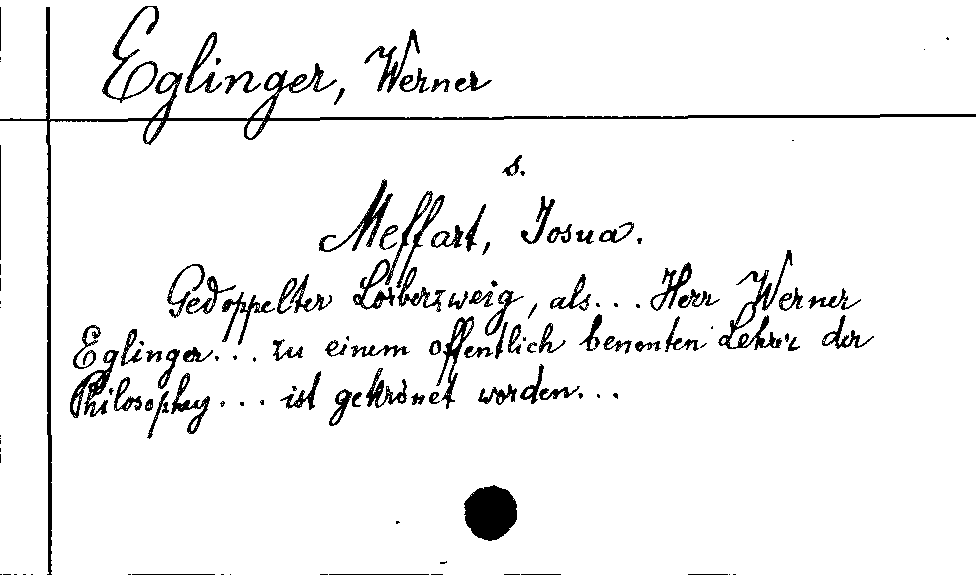 Eglinger, Werner
s.
Meffart, Josua.
Gedoppelter Lorberzweig, als... Herr Werner
Eglinger... zu einem offentlich benenten Lehrer der
Philosophey... ist gekrönet worden...